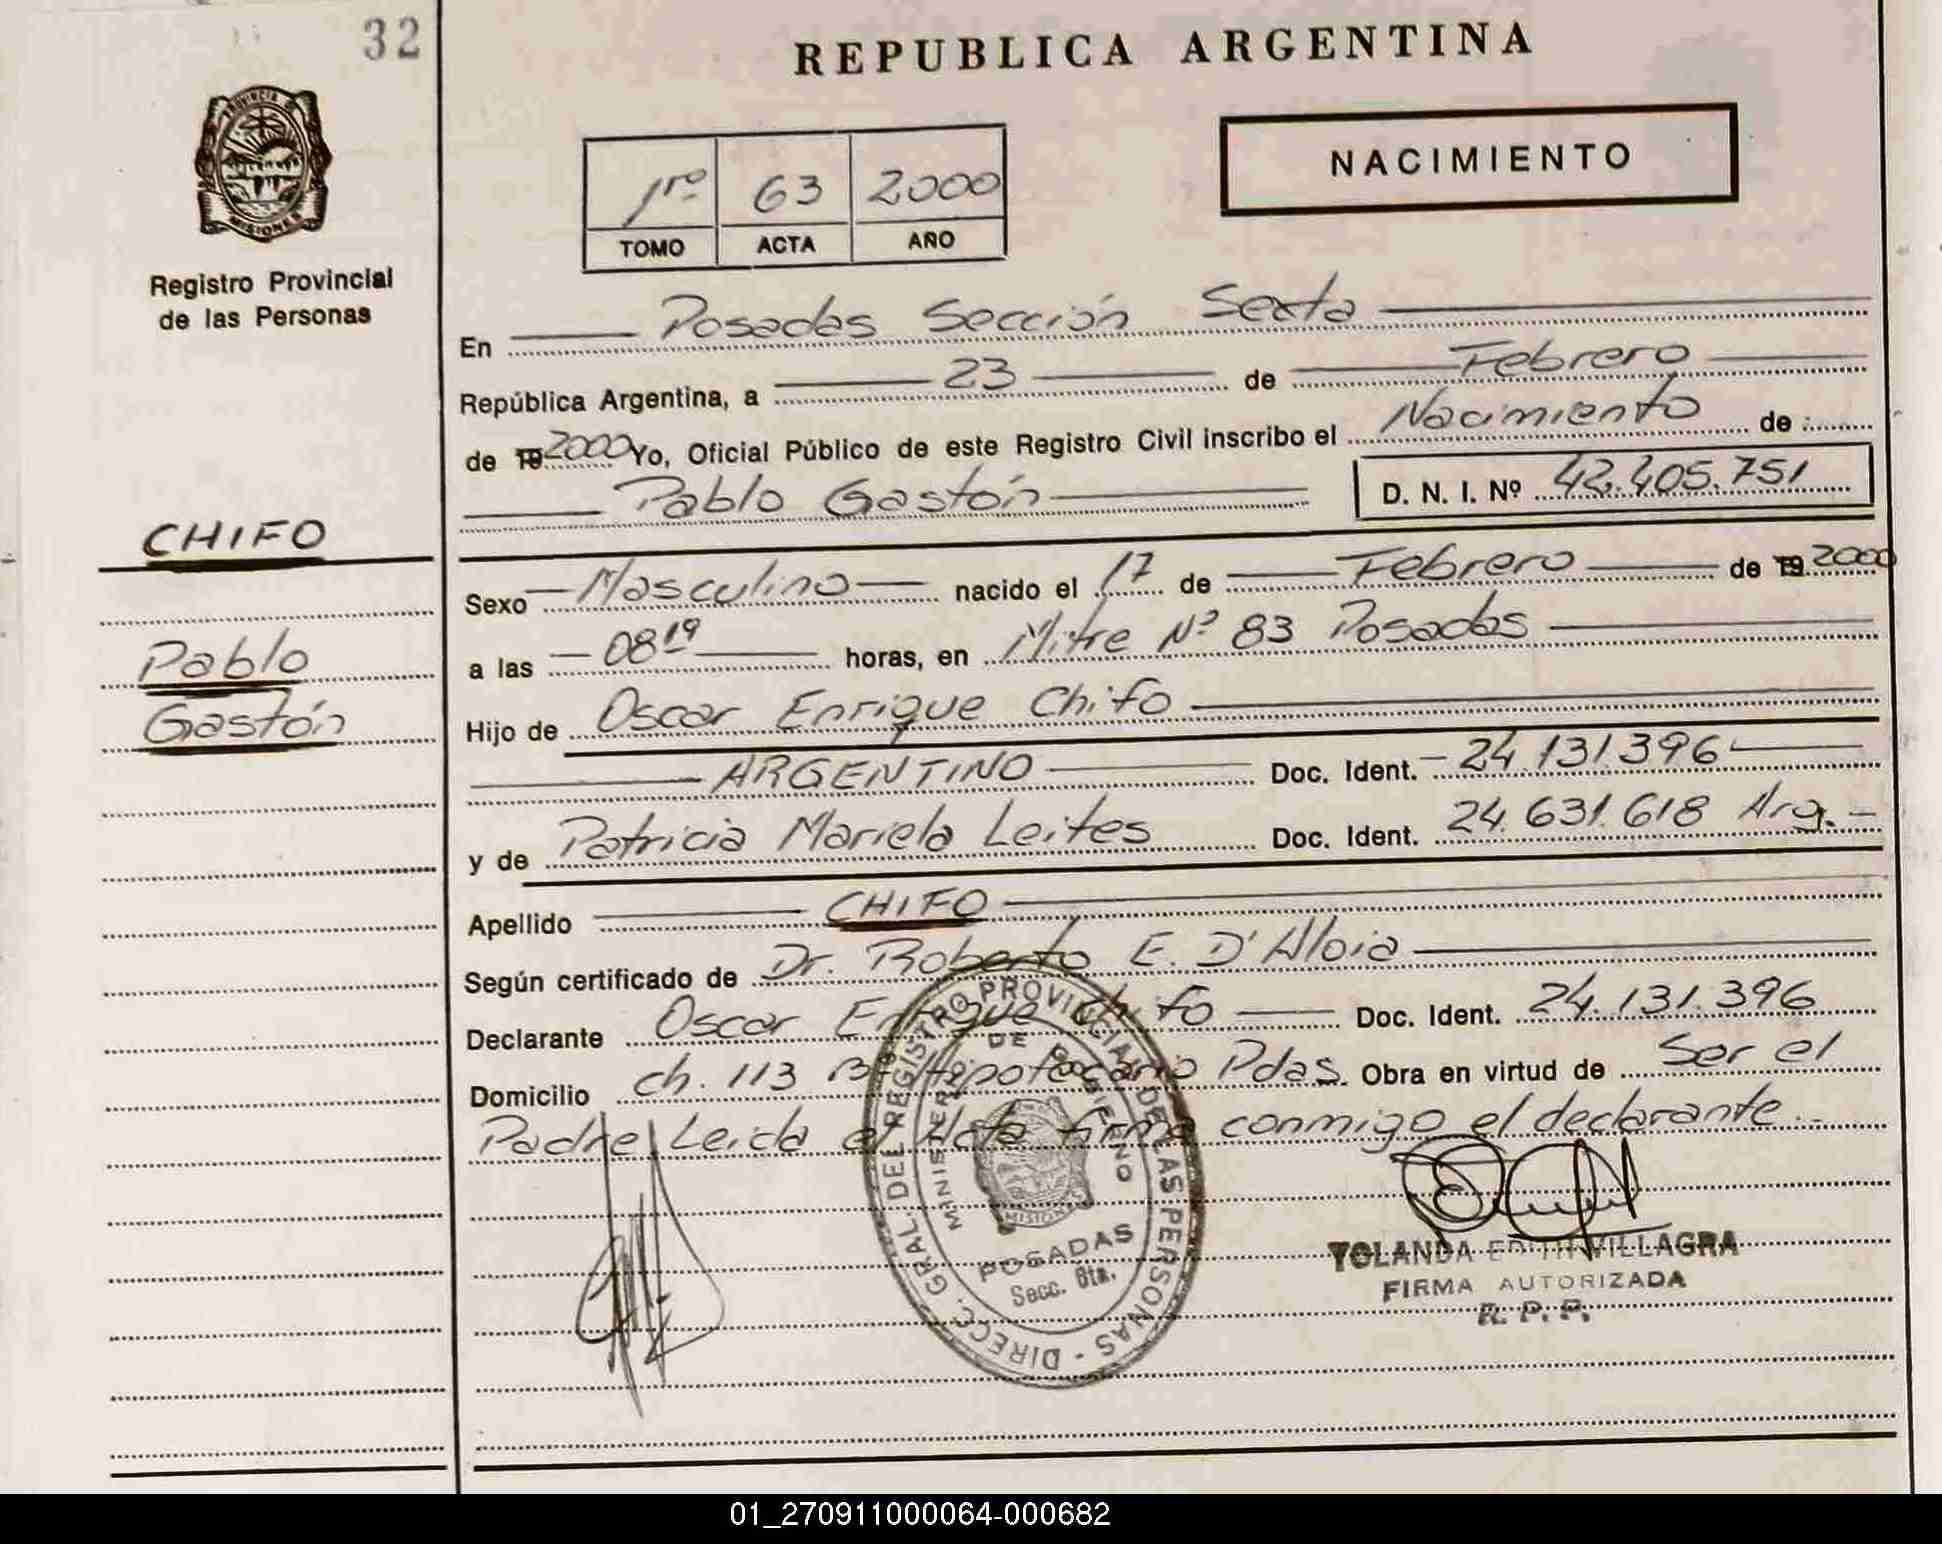 32
REPUBLICA ARGENTINA
PROVINCIA DE
MISIONES
Registro Provincial
de las Personas
1ro 63 2000
TOMO ACTA AÑO
NACIMIENTO
En Posadas Sección Sexta
República Argentina, a 23 de Febrero
de 19 2000 Yo, Oficial Público de este Registro Civil inscribo el Nacimiento de
Pablo Gastón D. N. I. Nº 42.405.751
CHIFO
Pablo
Gastón
Sexo Masculino nacido el 17 de Febrero de 19 2000
a las 08 19 horas, en Mitre Nº 83 Posadas
Hijo de Oscar Enrique Chifo
ARGENTINO Doc. Ident. 24.131.396
y de Patricia Mariela Leites Doc. Ident. 24.631.618 Arg.
Apellido CHIFO
Según certificado de Dr. Roberto E. D'Aloia
Declarante Oscar Enrique Chifo Doc. Ident. 24.131.396
Domicilio ch. 113 Bº Hipotecario Pdas. Obra en virtud de Ser el
Padre Leida el Acta firma conmigo el declarante.
DIRECC. GRAL. DEL REGISTRO PROVINCIAL DE LAS PERSONAS
MINISTERIO DE GOBIERNO
MISIONES
POSADAS
Secc. 6ta.
YOLANDA EDITH VILLAGRA
FIRMA AUTORIZADA
R. P. P.
01_270911000064-000682